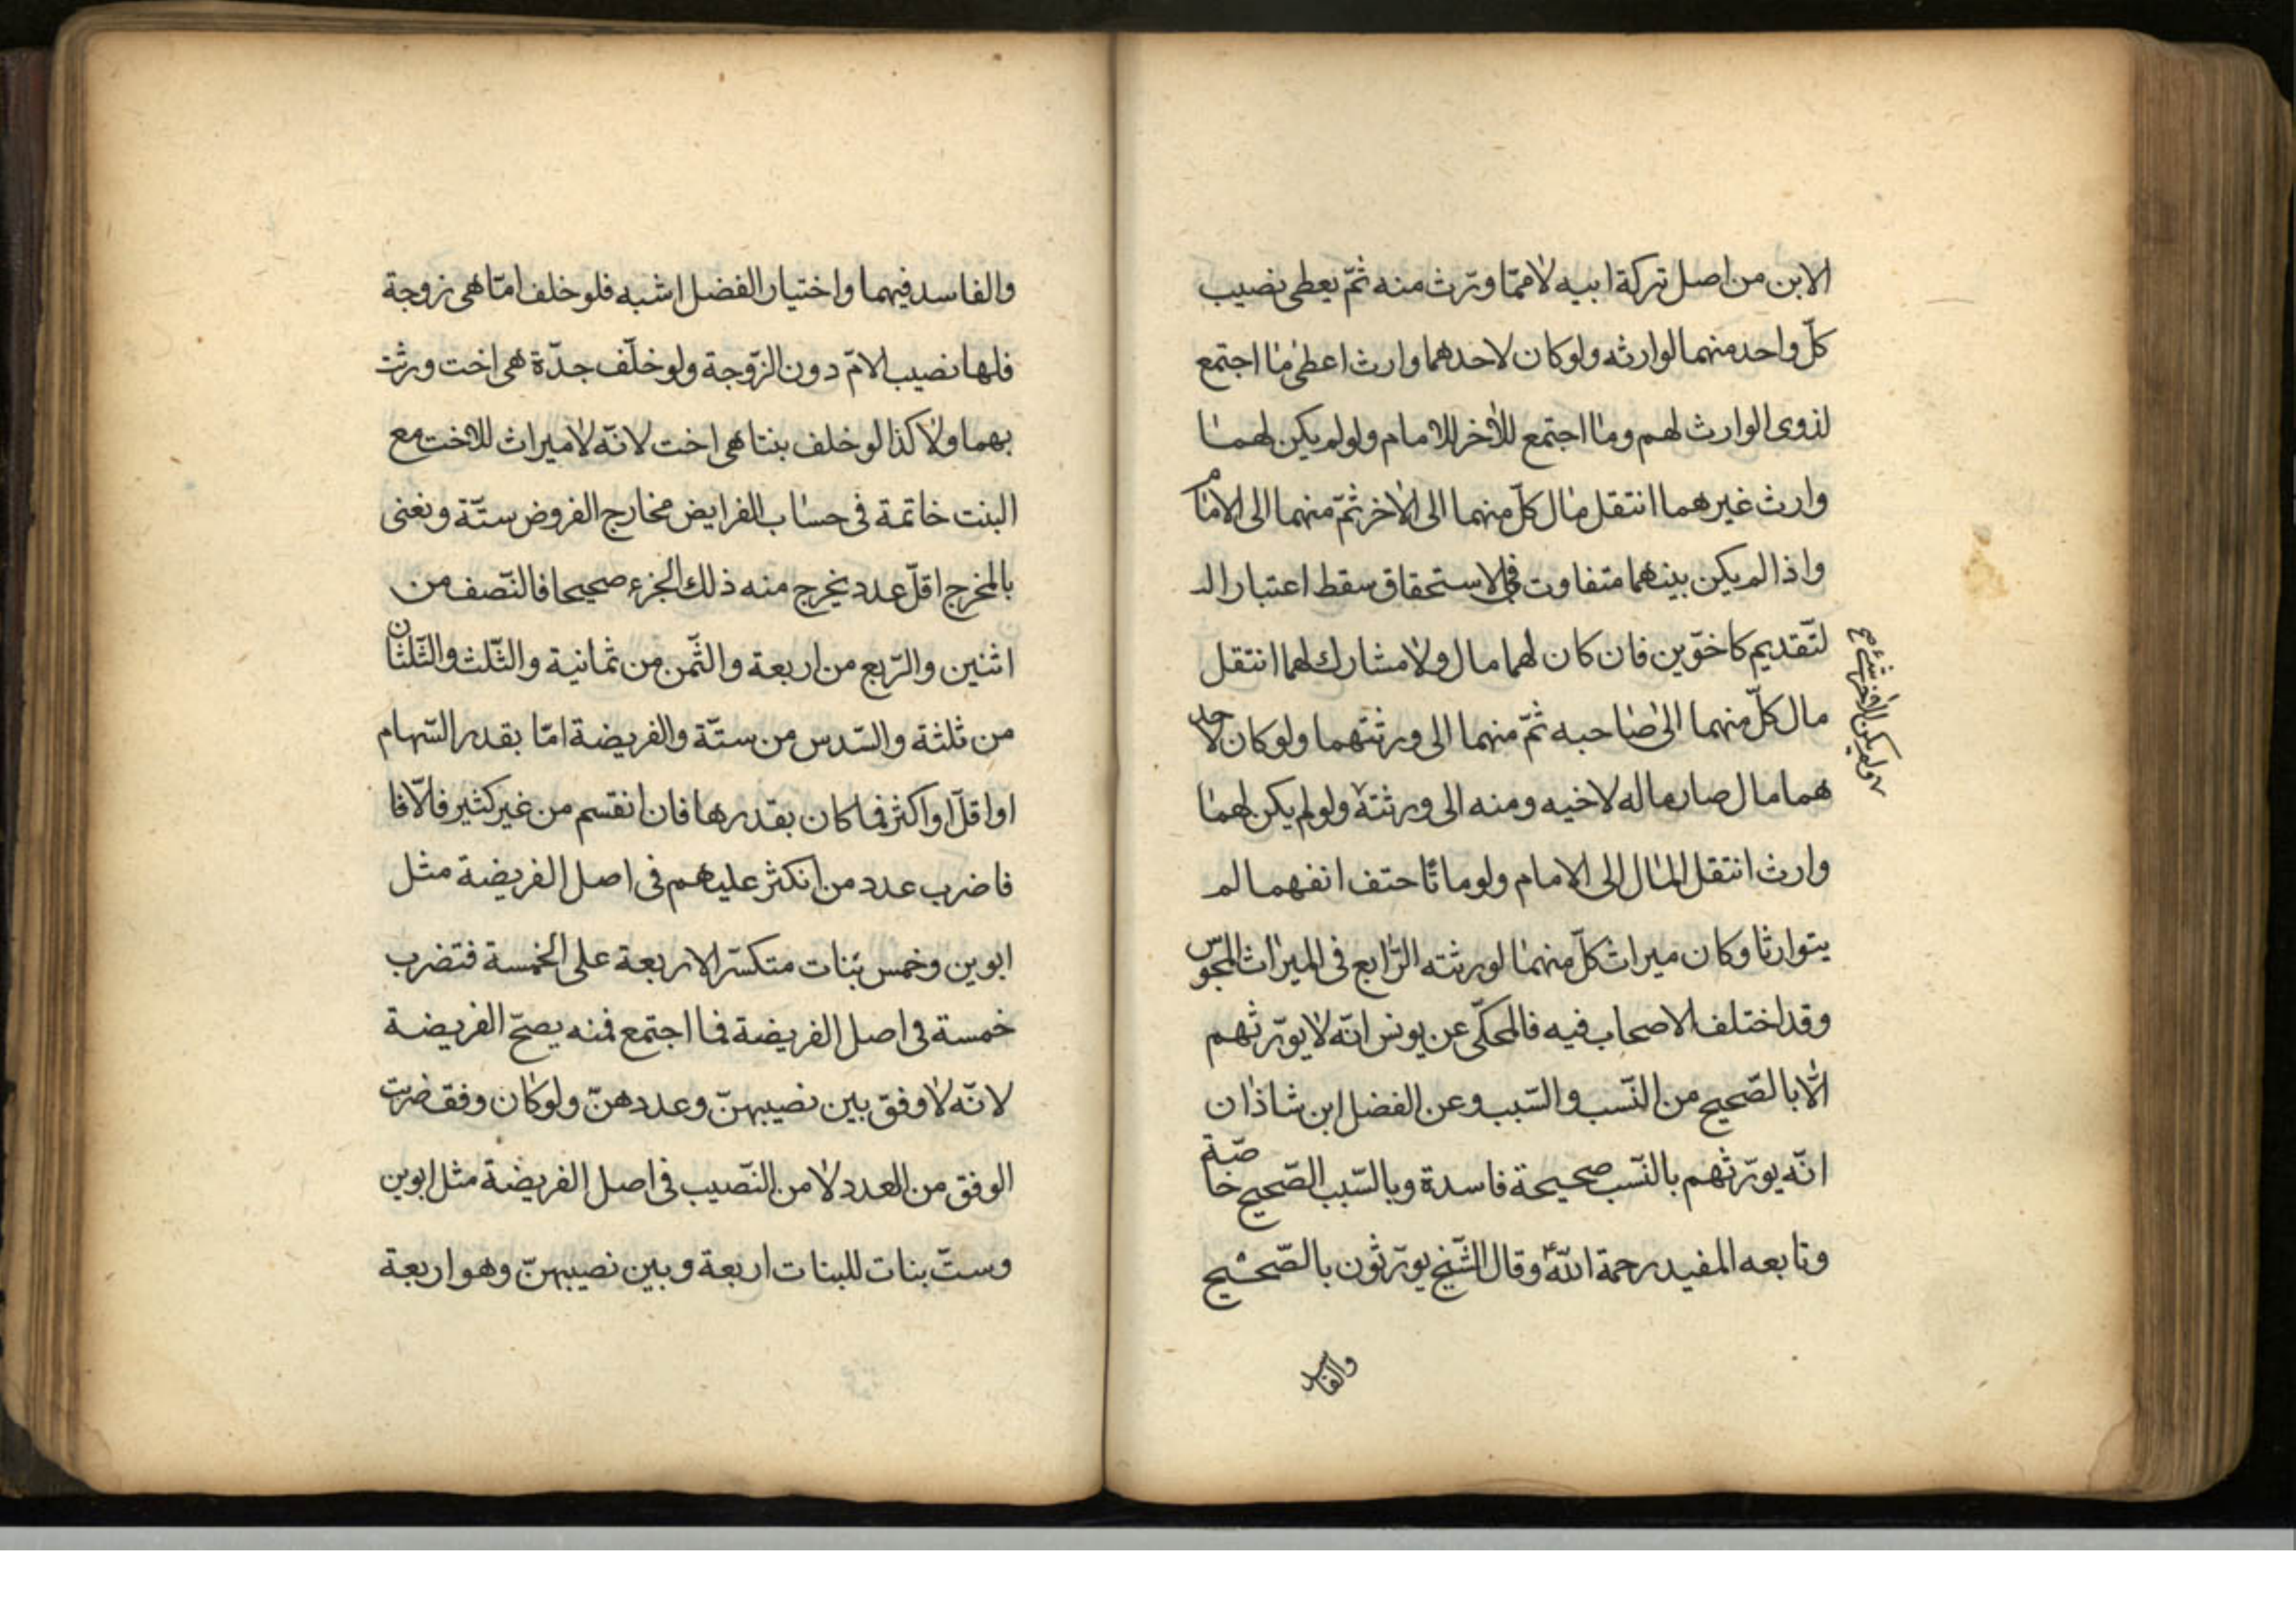 الابن من اصل تركة ابيه لا ممّا ورّث منه ثمّ يعطى نصيب
كلّ واحد منهما لوارثه ولو كان لاحدهما وارث اعطى ما اجتمع
لذوى الوارث لهم وما اجتمع للاخر للامام ولو لم يكن لهما
وارث غيرهما انتقل مال كلّ منهما الى الاخر ثمّ منهما الى الامام
واذا لم يكن بينهما متفاوت فى الاستحقاق سقط اعتبار الـ
لتّقديم كاخوّين فان كان لهما مال ولا مشارك لهما انتقل
مال كلّ منهما الى صاحبه ثمّ منهما الى ورثتهما ولو كان لاحد
هما مال صار ماله لاخيه ومنه الى ورثته ولو لم يكن لهما
وارث انتقل المال الى الامام ولو ماتا حتف انفهما لم
يتوارثا وكان ميراث كلّ منهما لورثته الرّابع فى الميراث المجوس
وقد اختلف الاصحاب فيه فالمحكّى عن يونس انّه لا يورّثهم
الّا بالصّحيح من النّسب والسّبب وعن الفضل ابن شاذان
انّه يورّثهم بالنّسب صحيحة فاسدة وبالسّبب الصّحيح خاصّة
وتابعه المفيد رحمة اللّه وقال الشّيخ يورّثون بالصّحيح
والفاسد
ولم يكن للاخر شئ صح
والفاسد فيهما واختيار الفضل اشبه فلو خلف امّا هى زوجة
فلها نصيب الامّ دون الزّوجة ولو خلّف جدّة هى اخت ورثت
بهما ولا كذا لو خلف بنتا هى اخت لانّه لا ميراث للاخت مع
البنت خاتمة فى حساب الفرايض مخارج الفروض ستّة ونعنى
بالمخرج اقلّ عدد يخرج منه ذلك الجزء صحيحا فالنّصف من
اثنين والرّبع من اربعة والثّمن من ثمانية والثّلث والثّلثان
من ثلثة والسّدس من ستّة والفريضة امّا بقدر السّهام
او اقلّ او اكثر فما كان بقدرها فان انقسم من غير كثير فالّا فا
فاضرب عدد من انكثر عليهم فى اصل الفريضة مثل
ابوين وخمس بنات متكسّر الاربعة على الخمسة فتضرب
خمسة فى اصل الفريضة فما اجتمع فمنه يصحّ الفريضة
لانّه لا وفق بين نصيبهنّ وعددهنّ ولو كان وفق ضربت
الوفق من العدد لا من النّصيب فى اصل الفريضة مثل ابوين
وستّ بنات للبنات اربعة وبين نصيبهنّ وهو اربعة